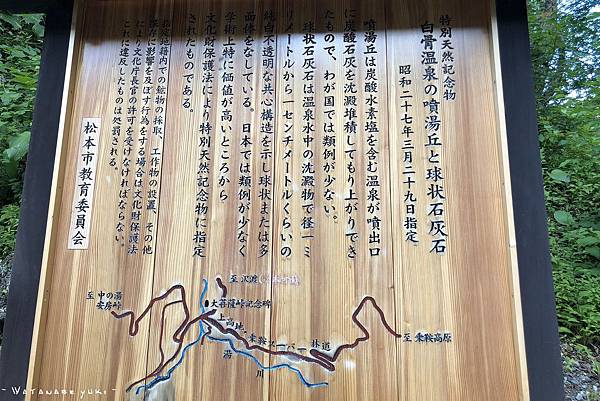 特別天然記念物
白骨温泉の噴湯丘と球状石灰石
昭和二十七年三月二十九日指定
噴湯丘は炭酸水素塩を含む温泉が噴出口
に炭酸石灰を沈澱堆積してもり上がりでき
たもので、わが国では類例が少ない。
球状石灰石は温泉水中の沈澱物で径一ミ
リメートルから一センチメートルくらいの
純白不透明な共心構造を示し球状または多
面体をしている。日本では類例が少なく
学術上特に価値が高いところから
文化財保護法により特別天然記念物に指定
されたものである。
指定地籍内での鉱物の採取、工作物の設置、その他
保存に影響を及ぼす行為をする場合は文化財保護法
により文化庁長官の許可を受けなければならない。
これに違反したものは処罰される。
松本市教育委員会
至 沢渡
至 中の湯
安房峠
大菩薩峠記念碑
上高地・乗鞍スーパー林道
至 乗鞍高原
湯川
- WATANABE YUKI -